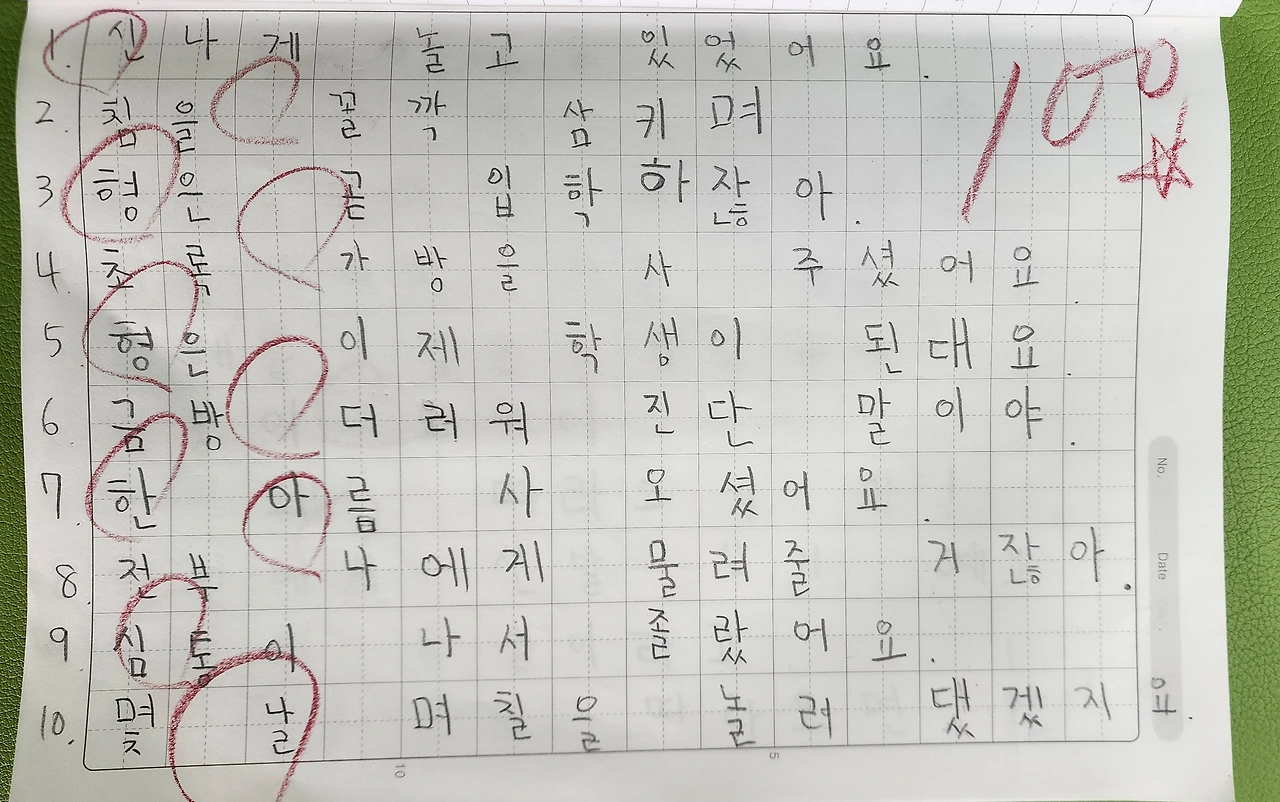 1. 신나게 놀고 있었어요.
2. 침을 꼴깍 삼키며
3. 형은 곧 입학하잖아.
4. 초록 가방을 사 주셨어요.
5 형은 이제 학생이 된대요.
6 금방 더러워 진단 말이야.
7 한 아름 사 오셨어요.
8. 전부 나에게 물려줄 거잖아.
9 심통이 나서 졸랐어요.
10. 몇 날 며칠을 놀러 댔겠지요.
100
No.
Date
10
5